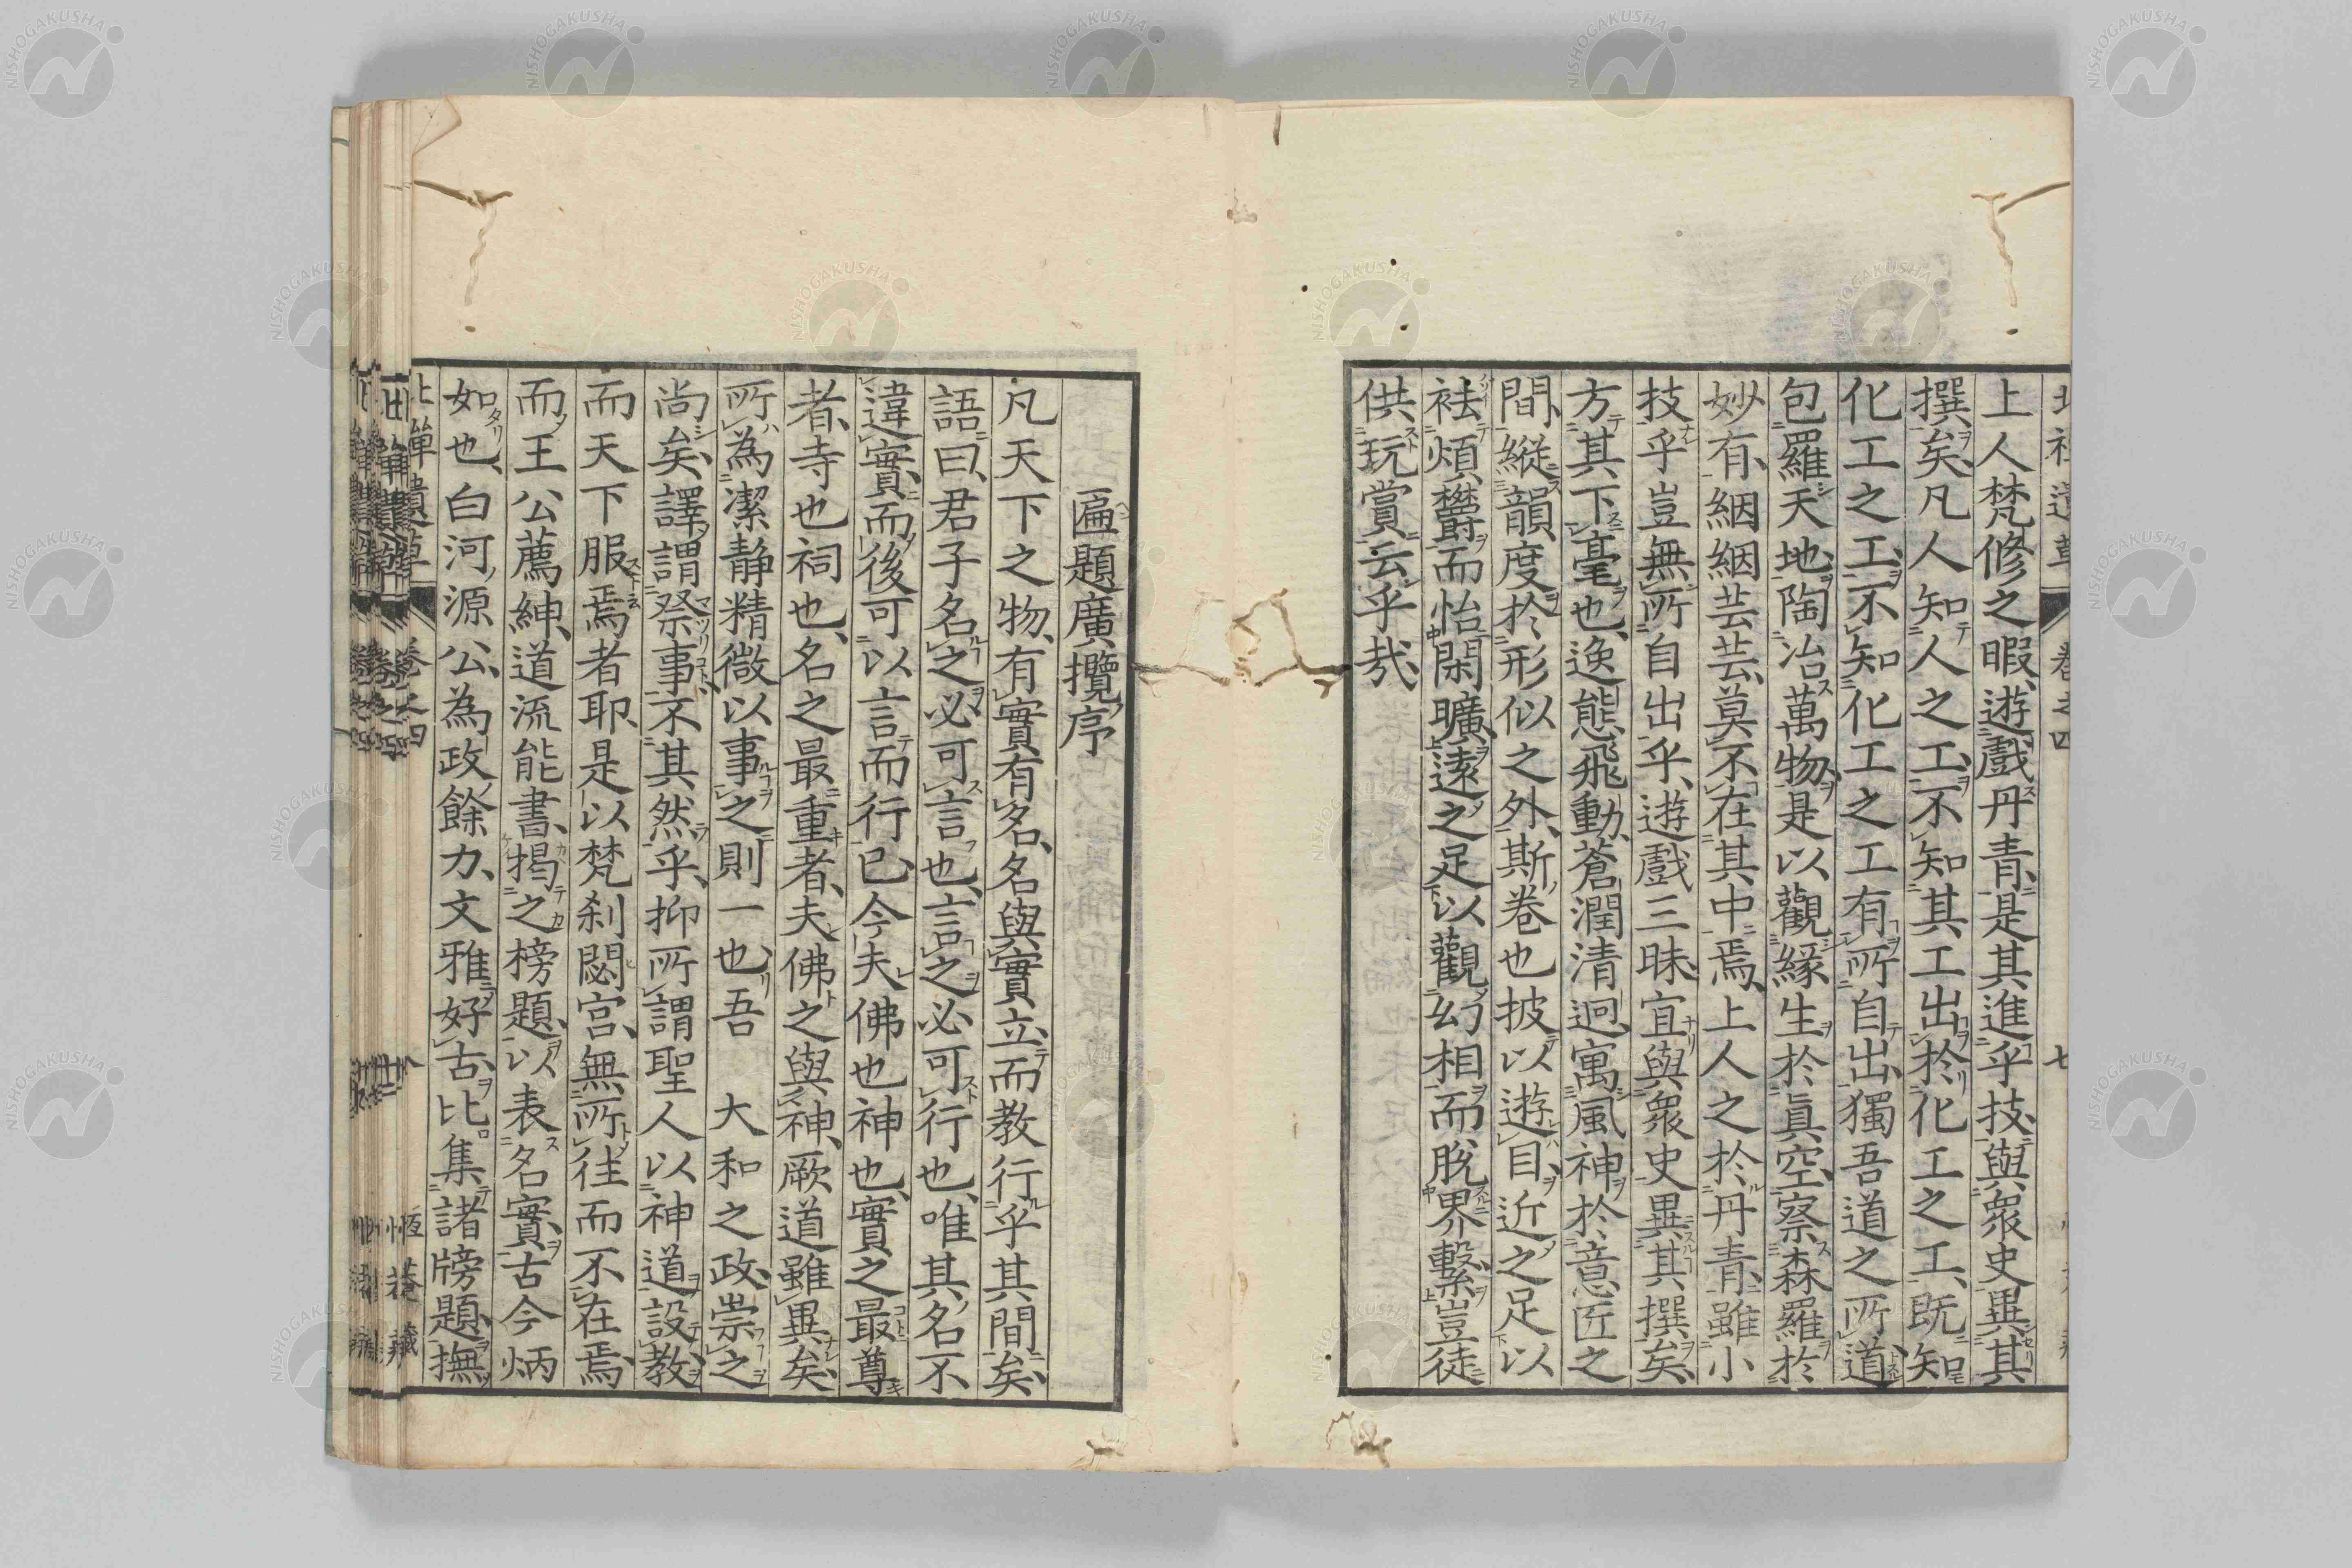 上人梵修之暇、遊戲丹青、是其進乎技、與衆史異其
撰矣、凡人知人之工、不知其工出於化工之工、既知
化工之工、不知化工之工有所自出、獨吾道之所道、
包羅天地、陶冶萬物、是以觀緣生於眞空、察森羅於
妙有、絪絪芸芸、莫不在其中焉、上人之於丹青、雖小
技乎、豈無所自出乎、遊戲三昧、宜與衆史異其撰矣、
方其下毫也、逸態飛動、蒼潤清迥、寓風神於意匠之
間、縱韻度於形似之外、斯卷也、披以遊目、近之足以
袪煩欝而怡閑曠、遠之足以觀幻相而脫界繫、豈徒
供玩賞云乎哉、
匾題廣攬序
凡天下之物、有實有名、名與實立而教行乎其間矣、
語曰、君子名之必可言也、言之必可行也、唯其名不
違實、而後可以言而行已、今夫佛也神也、實之最尊
者、寺也祠也、名之最重者、夫佛之與神、厥道雖異矣、
所為潔静精微以事之則一也、吾 大和之政、崇之
尚矣、譯謂祭事、不其然乎、抑所謂聖人以神道設教、
而天下服焉者耶、是以梵刹閟宮、無所徃而不在焉、
而王公薦紳、道流能書、揭之榜題、以表名實、古今炳
如也、白河源公、為政餘力、文雅好古、比集諸牓題、撫
北禪遺草 卷之四 八